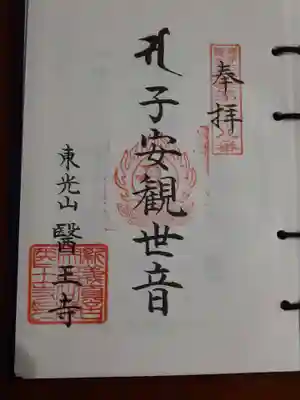 奉拝
子安観世音
東光山 醫王寺